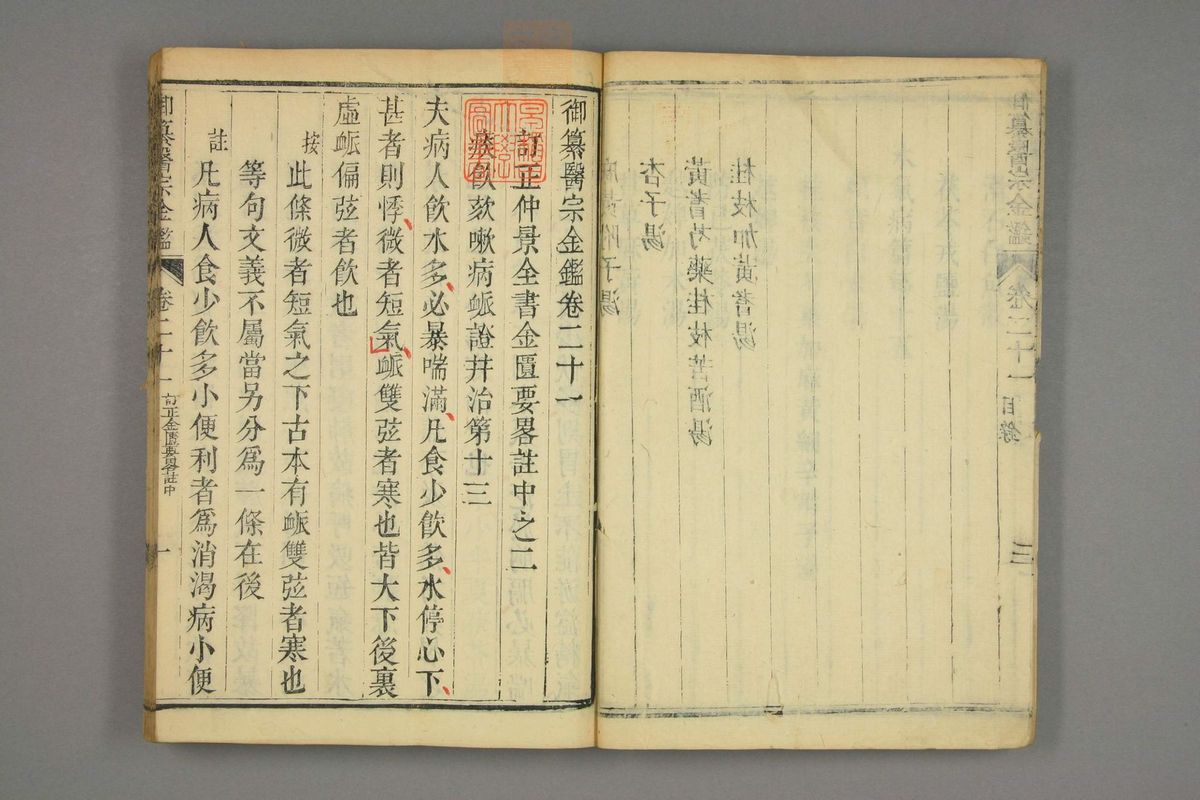 桂枝加黃耆湯
黃耆芍藥桂枝苦酒湯
杏子湯
麻黃附子湯
御纂醫宗金鑑 卷二十一 目錄 三
御纂醫宗金鑑卷二十一
訂正仲景全書金匱要畧註中之二
痰飮欬嗽病脈證并治第十三
夫病人飮水多必暴喘滿凡食少飮多水停心下
甚者則悸微者短氣脈雙弦者寒也皆大下後裏
虛脈偏弦者飮也
按 此條微者短氣之下古本有脈雙弦者寒也
等句文義不屬當另分爲一條在後
註 凡病人食少飮多小便利者爲消渴病小便
御纂醫宗金鑑 卷二十一 訂正金匱要畧註中 一